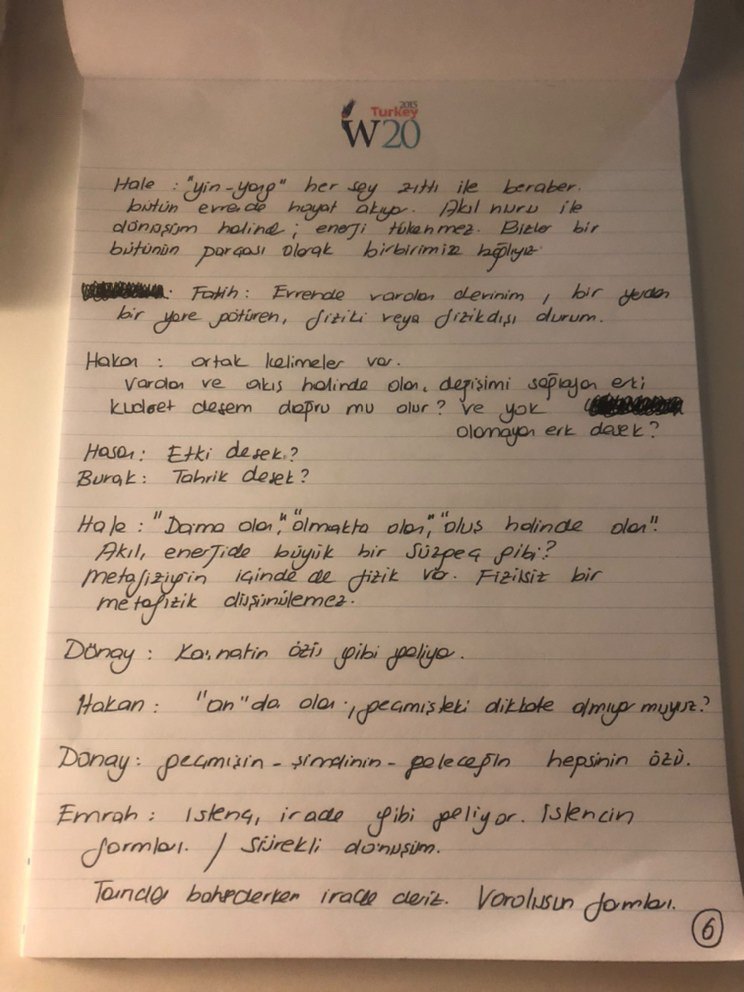 2015
Turkey
W20
Hale : "yin-yang" her şey zıttı ile beraber.
bütün evrende hayat akıyor. Akıl nuru ile
dönüşüm halinde ; enerji tükenmez. Bizler bir
bütünün parçası olarak birbirimize bağlıyız.
: Fatih : Evrende varolan devinim , bir yerden
bir yere götüren, fiziki veya fizikdışı durum.
Hakan : ortak kelimeler var.
Varolan ve akış halinde olan, değişimi sağlayan erki
kudret desem doğru mu olur? ve yok
olamayan erk desek?
Hasan : Etki desek?
Burak : Tahrik desek?
Hale : "Daima olan", "olmakta olan", "oluş halinde olan".
Akıl, enerjide büyük bir süzgeç gibi?
Metafiziğin içinde de fizik var. Fiziksiz bir
metafizik düşünülemez.
Dönay : Kainatın özü gibi geliyor.
Hakan : "an"da olan , geçmişteki dikkate almıyor muyuz?
Dönay : geçmişin - şimdinin - geleceğin hepsinin özü.
Emrah : istenç, irade gibi geliyor. İstencin
formları. / Sürekli dönüşüm.
Tanrıdan bahsederken irade deriz. Varoluşun formları.
6